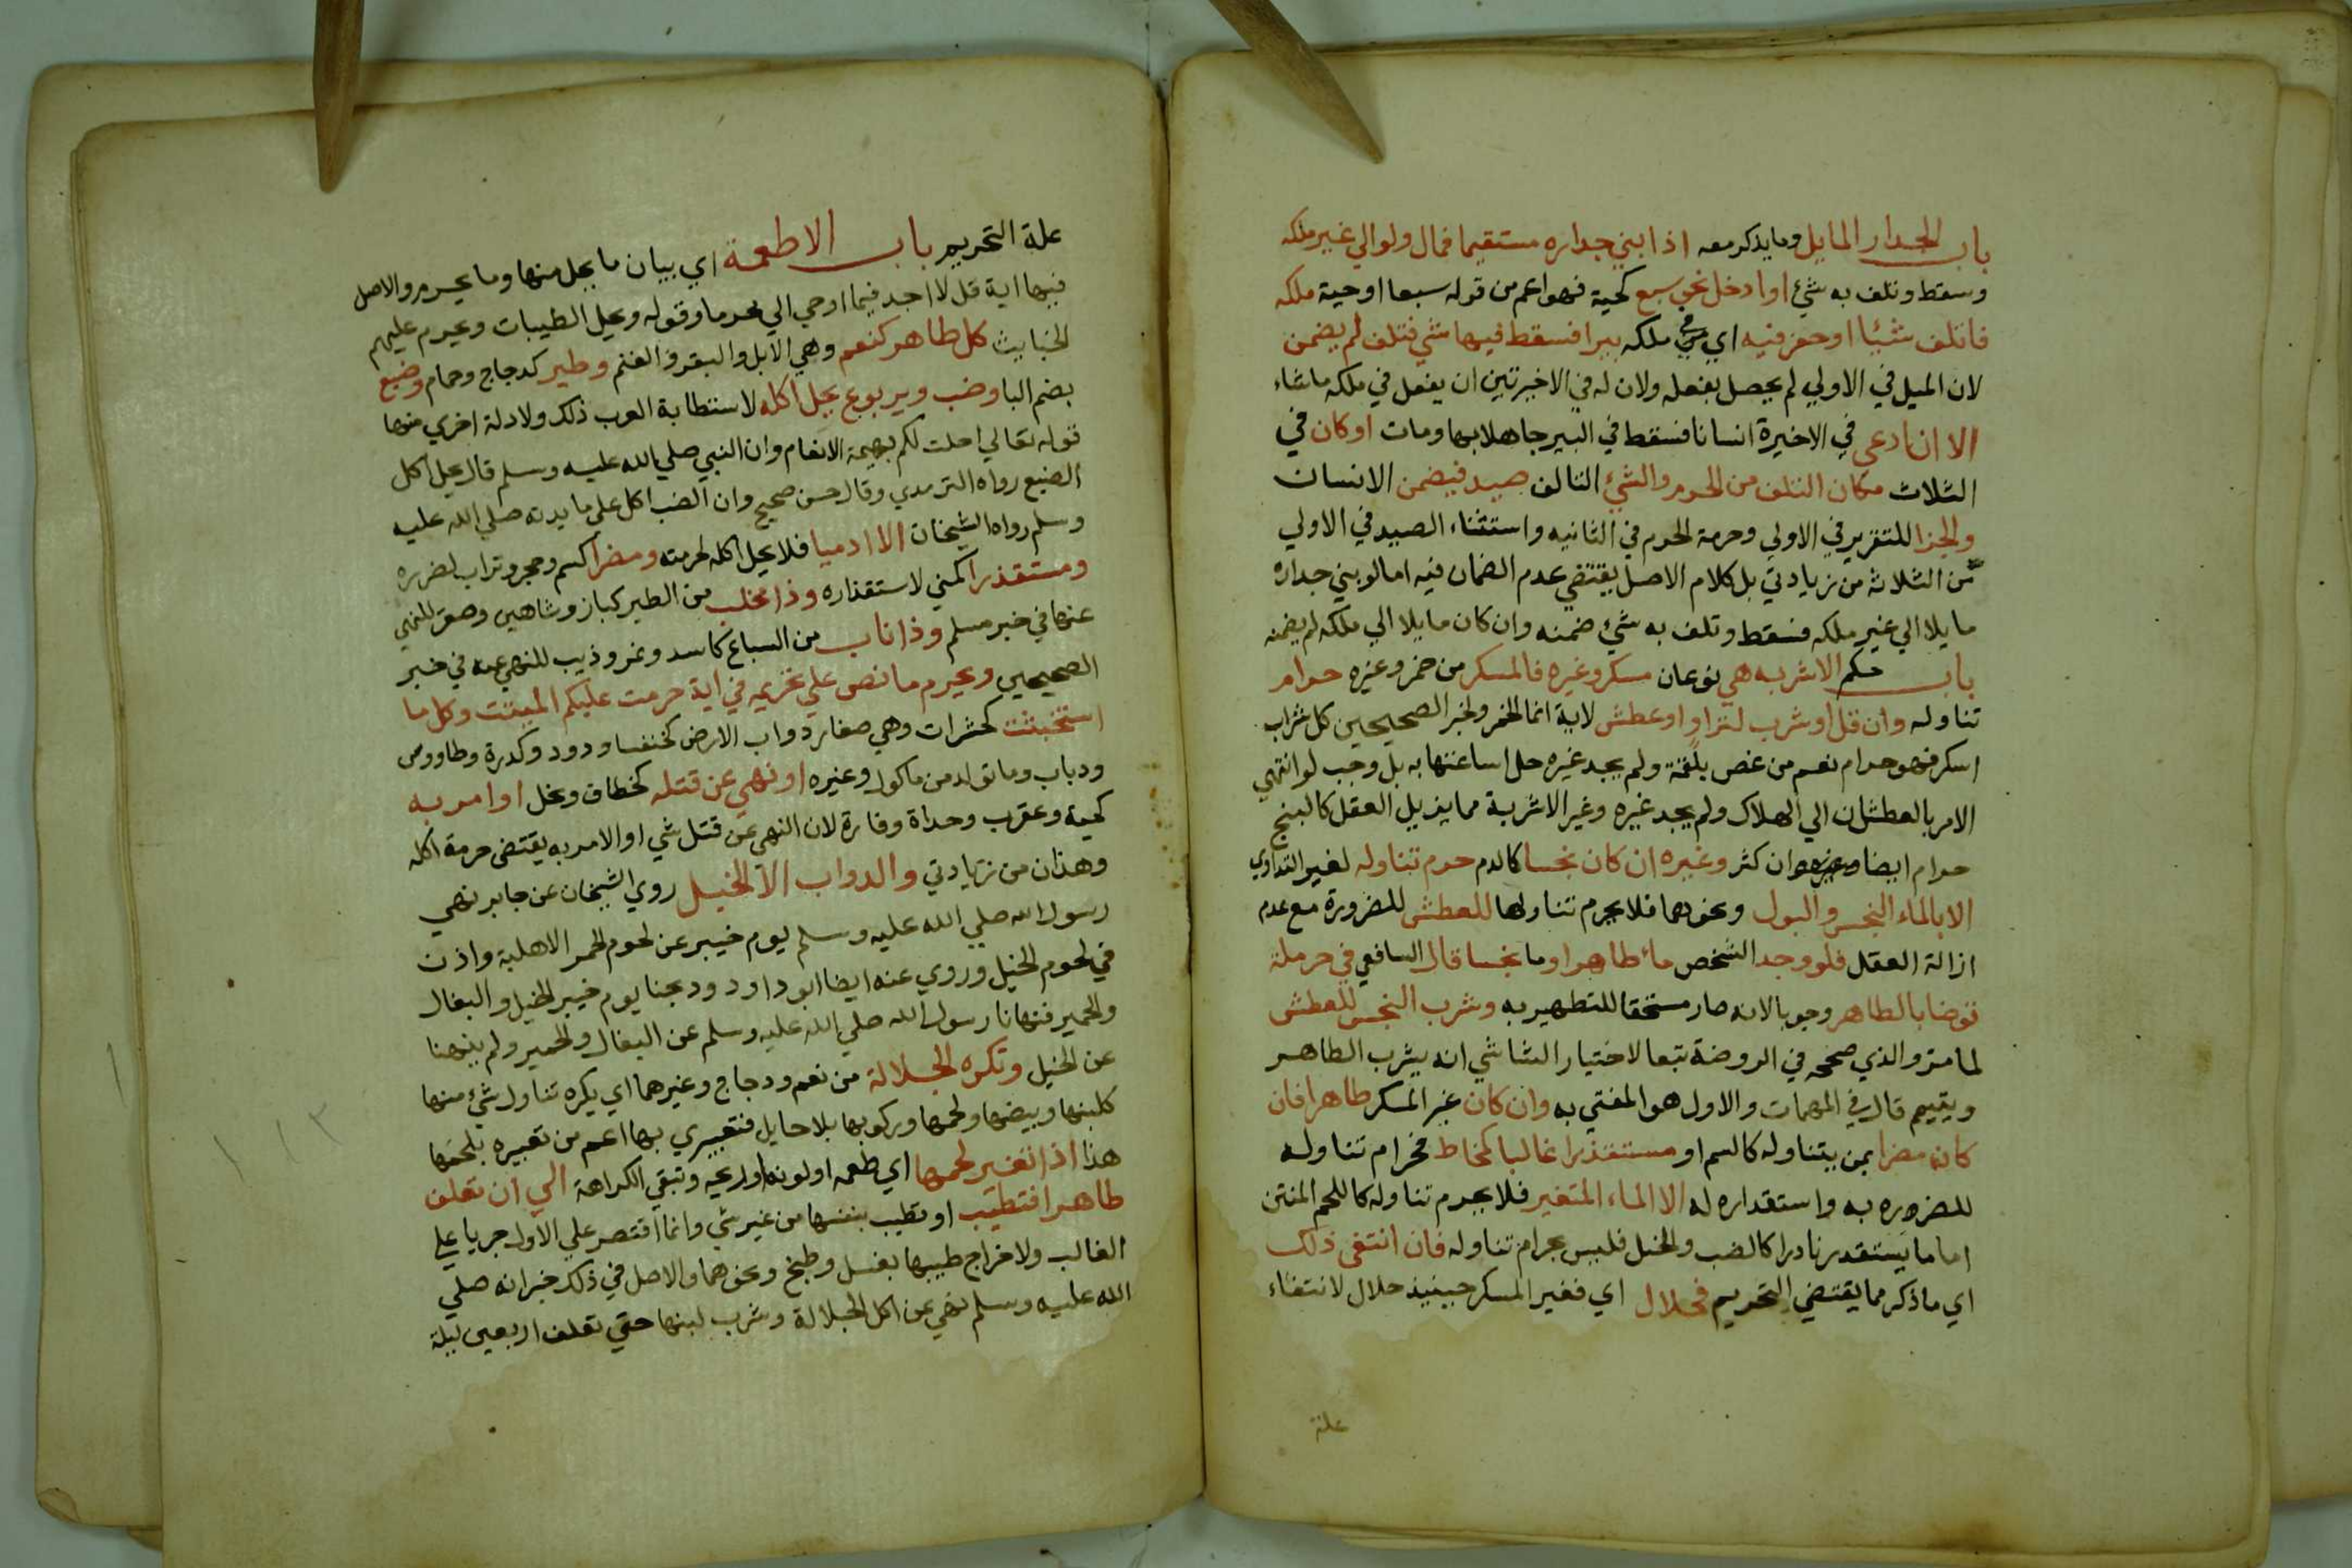 باب الجدار المايل وما يذكر معه اذا بني جداره مستقيما فمال ولو الي غير ملكه
وسقط وتلف به شيء او ادخل نحو سبع كحية فهو اعم من قوله سبعا او حية ملكه
فاتلف شيئا او حفر فيه اي في ملكه بيرا فسقط فيها شي فتلف لم يضمن
لان الميل في الاولي لم يحصل بفعله ولان له في الاخيرتين ان يفعل في ملكه ما شاء
الا ان ادعي في الاخيرة انسانا فسقط في البير جاهلا بها ومات او كان في
الثلاث مكان التلف من الحرم والشيء التالف صيد فيضمن الانسان
والجزا للتغرير في الاولي وحرمة الحرم في الثانيه واستثناء الصيد في الاولي
من الثلاثة من زيادتي بل كلام الاصل يقتضي عدم الضمان فيه اما لو بني جداره
مايلا الي غير ملكه فسقط وتلف به شيء ضمنه وان كان مايلا الي ملكه لم يضمنه
باب حكم الاشربه هي نوعان مسكر وغيره فالمسكر من خمر وغيره حرام
تناوله وان قل او شرب لتداو او عطش لاية انما الخمر ولخبر الصحيحين كل شراب
اسكر فهو حرام نعم من غص بلقمة ولم يجد غيره حل اساغتها به بل وجب لو انتهي
الامر بالعطشان الي الهلاك ولم يجد غيره وغير الاشربة مما يزيل العقل كالبنج
حرام ايضا وان كثر وغيره ان كان نجسا كالدم حرم تناوله لغير التداوي
الا بالماء النجس والبول ونحوهما فلا يحرم تناولها للعطش للضرورة مع عدم
ازالة العقل فلو وجد الشخص ماء طاهرا وما نجسا قال السافعي في حرملة
توضا بالطاهر وجوبا لانه صار مستحقا للتطهير به وشرب النجس للعطش
لما مر والذي صححه في الروضة تبعا لاختيار الشاشي انه يشرب الطاهر
ويتيمم قال في المهمات والاول هو المفتي به وان كان غير المسكر طاهرا فان
كان مضرا بمن يتناوله كالسم او مستقذرا غالبا كمخاط فحرام تناوله
للضرره به واستقداره له الا الماء المتغير فلا يحرم تناوله كاللحم المنتن
اما ما يستقدر نادرا كالضب والخيل فليس بحرام تناوله فان انتفي ذلك
اي ما ذكر مما يقتضي التحريم فحلال اي فغير المسكر حينيذ حلال لانتفاء
علة
علة التحريم باب الاطعمة اي بيان ما يحل منها وما يحرم والاصل
فيها اية قل لا اجد فيما اوحي الي محرما وقوله ويحل الطيبات ويحرم عليهم
الخبايث كل طاهر كنعم وهي الابل والبقر والغنم وطير كدجاج وحمام وضبع
بضم البا وضب ويربوع يحل اكله لاستطابة العرب ذلك ولادلة اخري منها
قوله تعالي احلت لكم بهيمة الانعام وان النبي صلي الله عليه وسلم قال يحل اكل
الضبع رواه الترمدي وقال حسن صحيح وان الضب اكل علي مايدته صلي الله عليه
وسلم رواه الشيخان الا ادميا فلا يحل اكله لحرمته ومضرا كسم وحجر وتراب لضرره
ومستقذرا كمني لاستقذاره وذا مخلب من الطير كباز وشاهين وصقر للنهي
عنها في خبر مسلم وذا ناب من السباع كاسد ونمر وذيب للنهي عنه في خبر
الصحيحين ويحرم ما نص علي تحريمه في اية حرمت عليكم الميتت وكل ما
استخبثت كحشرات وهي صغار دواب الارض كخنفسا ودود وكدرة وطاووس
ودباب وما تولد من ماكول وغيره او نهي عن قتله كخطاف ونحل او امر به
كحية وعقرب وحداة وفارة لان النهي عن قتل شي او الامر به يقتضي حرمة اكله
وهذان من زيادتي والدواب الا الخيل روي الشيخان عن جابر نهي
رسول الله صلي الله عليه وسلم يوم خيبر عن لحوم الحمر الاهلية واذن
في لحوم الخيل وروي عنه ايضا ابو داود ودبحنا يوم خيبر الخيل والبغال
والحمير فنهانا رسول الله صلي الله عليه وسلم عن البغال والحمير ولم ينهنا
عن الخيل وتكره الجلالة من نعم ودجاج وغيرهما اي يكره تناول شيء منها
كلبنها وبيضها ولحمها وركوبها بلا حايل فتعبيري بها اعم من تعبيره بلحمها
هذا اذا تغير لحمها اي طعمه او لونه او ريحه وتبقي الكراهة الي ان تعلف
طاهرا فتطيب او تطيب بنفسها من غير شي وانما اقتصر علي الاول جريا علي
الغالب ولاخراج طيبها بغسل وطبخ ونحوهما والاصل في ذلك خبر انه صلي
الله عليه وسلم نهي عن اكل الجلالة وشرب لبنها حتي تعلف اربعين ليلة